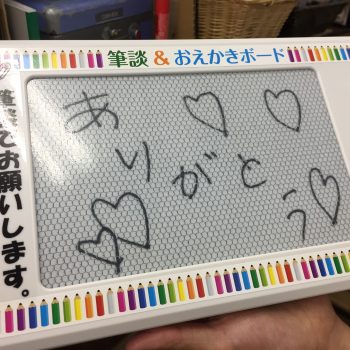 筆談&おえかきボード
筆談でお願いします。
ありがとう